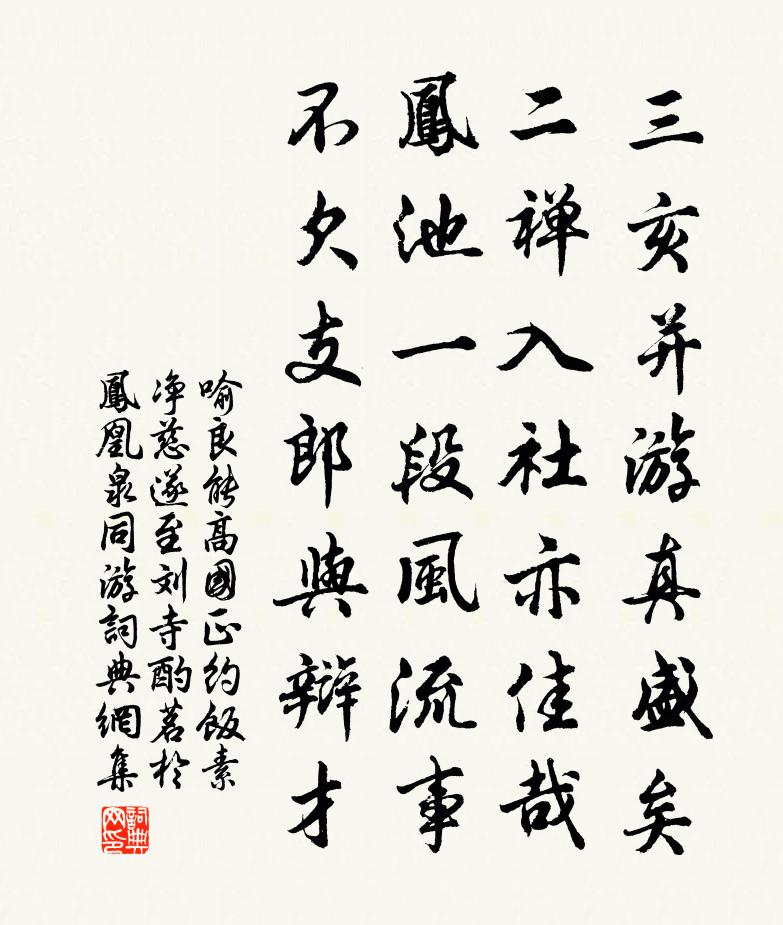 三亥并游真盛矣
二禅入社亦佳哉
鳳池一段風流事
不欠支郎與辯才
喻良能高國正約飯素
净慈遂至刘寺酌茗於
鳳凰泉同游詞典網集
詞典
网印